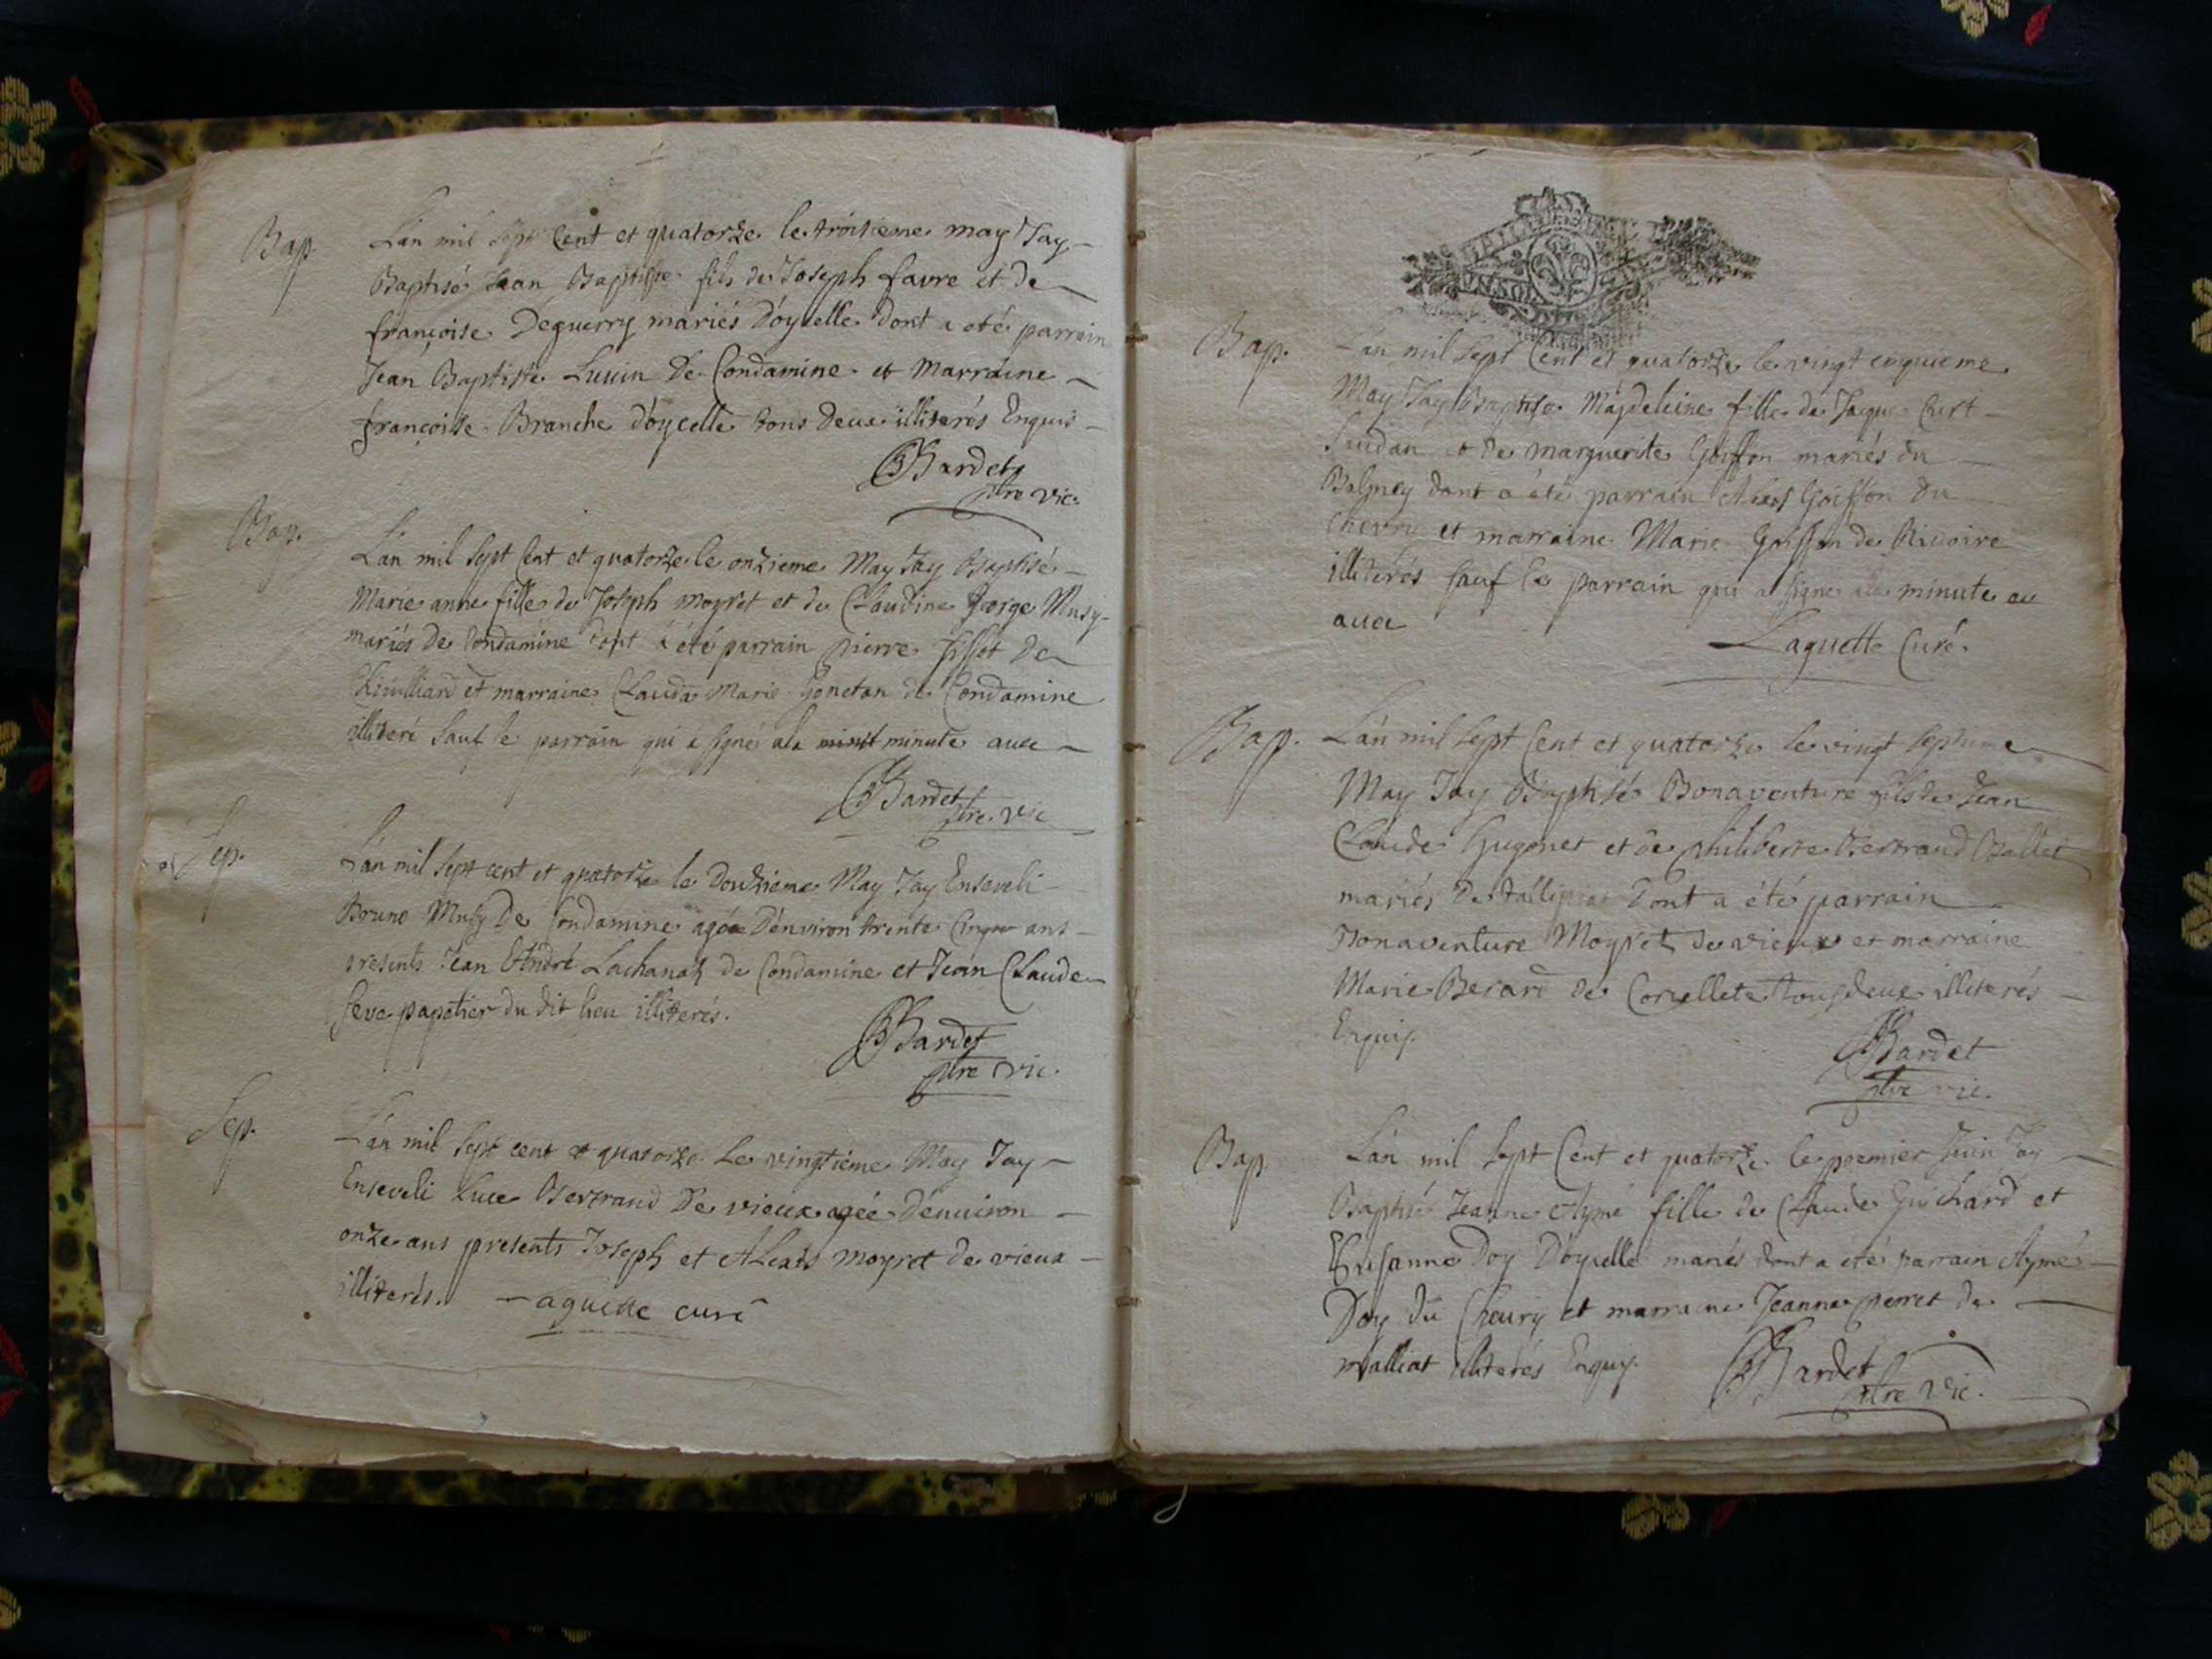 Bap.
L'an mil sept Cent et quatorze le troisieme may Jay
Baptisé Jean Baptiste fils de Joseph favre et de
françoise Deguerry mariés d'oyselle dont a été parrain
Jean Baptiste Luuin de Condamine et Marraine
françoise Branche d'oycelle tous deux illiterés Enquis
Bardet
ptre vic.
Bap.
L'an mil sept Cent et quatorze le onzieme May Jay Baptisé
Marie anne fille de Joseph moyret et de Claudine George Musy
mariés de Condamine dont a été parrain pierre fillot de
et marraine Clauda Marie Gonetan de Condamine
illiteré sauf le parrain qui a signé ala minut minute avec
Bardet
ptre. vic
Sep.
L'an mil sept cent et quatorze le Douzieme May Jay Enseveli
Bruno Musy De Condamine agée D'environ trente Cinq ans
presents Jean André Lachanat de Condamine et Jean Claude
seve papetier du dit lieu illiterés.
Bardet
ptre vic.
Sep.
L'an mil sept cent et quatorze Le vingtiéme May Jay
Enseveli Luce Bertrand De vieux agée d'enuiron
onze ans presents Joseph et Alexis moyret de vieux
illiterés. Laguette curé
Bap.
L'an mil sept Cent et quatorze le vingt cinquieme
May Jay Baptisé Magdeleine fille de Jaque Curt
et de marguerite Goiffon mariés du
Balmey dont a été parrain Alexis Goiffon du
et marraine Marie Goiffon de Riuoire
illiterés sauf le parrain qui a signé ala minute au
avec
Laguette Curé.
Bap.
L'an mil sept Cent et quatorze le vingt septieme
May Jay Baptisé Bonaventure fils de Jean
Claude Hugonet et de philiberte Bertrand Ballet
mariés De dont a été parrain
Bonaventure Moyret de vieux et marraine
Marie Berard de Corcellete tous deux illiterés
Enquis.
Bardet
ptre vic.
Bap.
L'an mil sept Cent et quatorze le premier Juin Jay
Baptisé Jeanne Aymé fille de Claude Guichard et
Doy D'oyselle mariés dont a été parrain Aymé
Doy du Cheury et marraine Jeanne perret de
malliat illiterés Enquis.
Bardet
ptre vic.